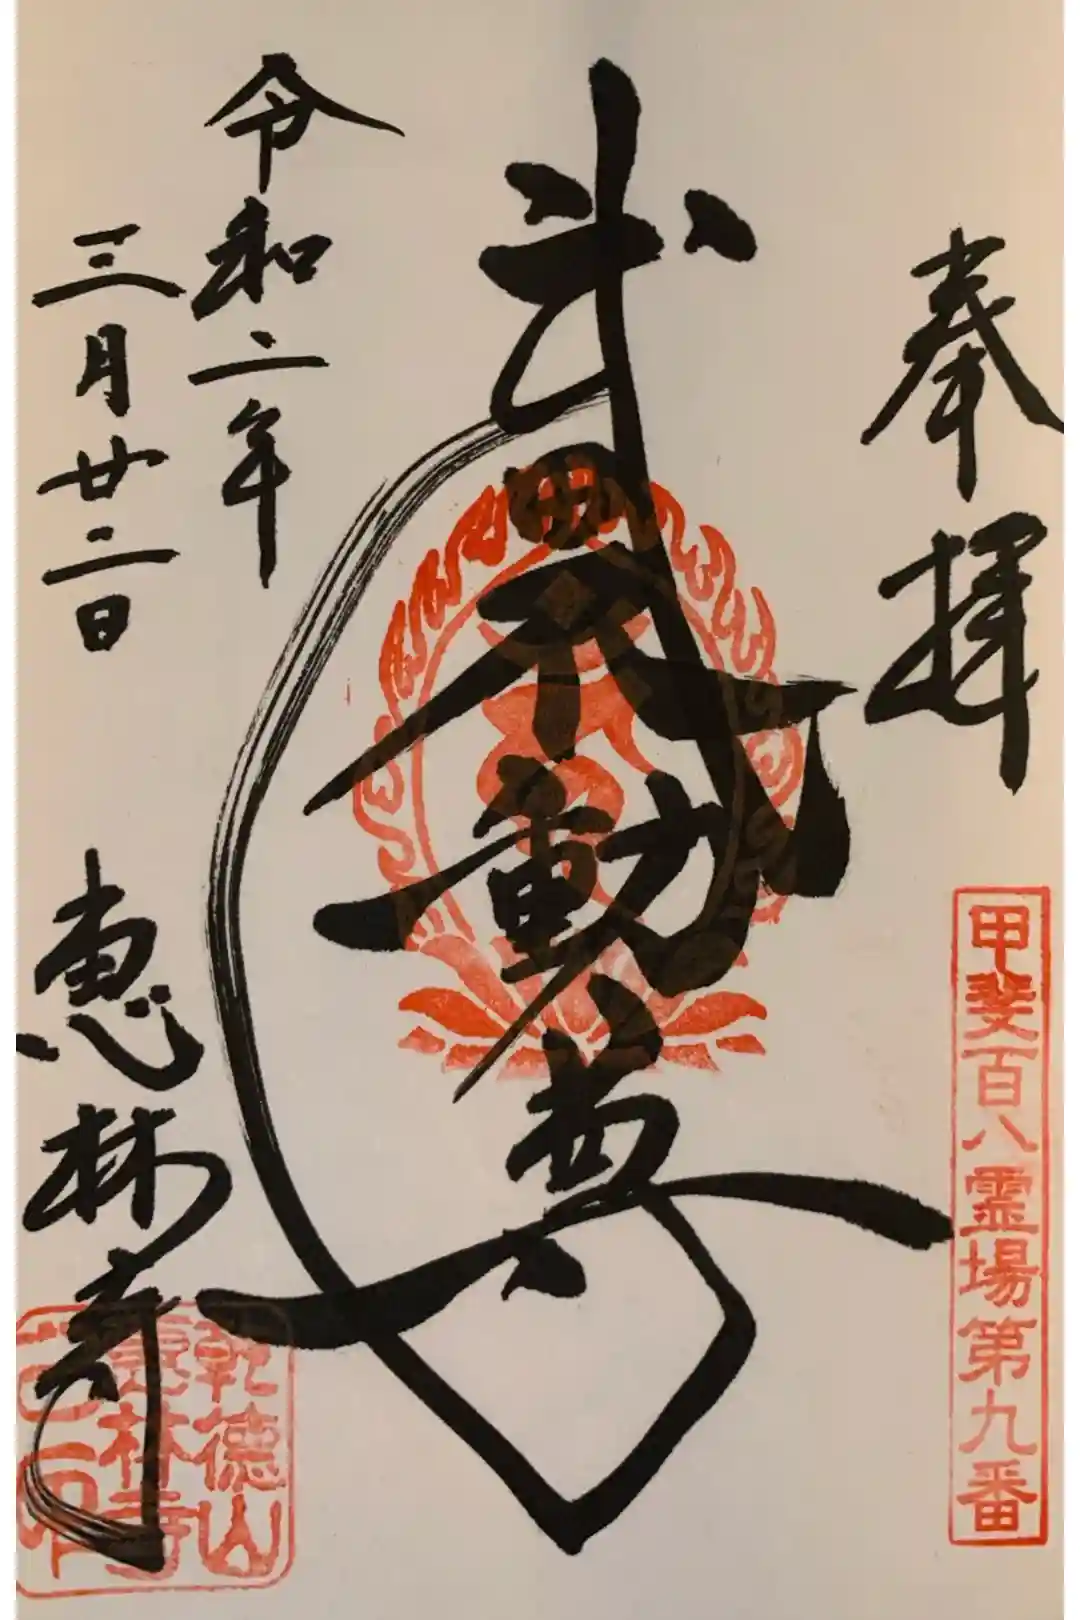 奉拝
甲斐百八霊場第九番
武田不動尊
令和二年
三月廿二日
恵林寺
乾徳山
恵林寺